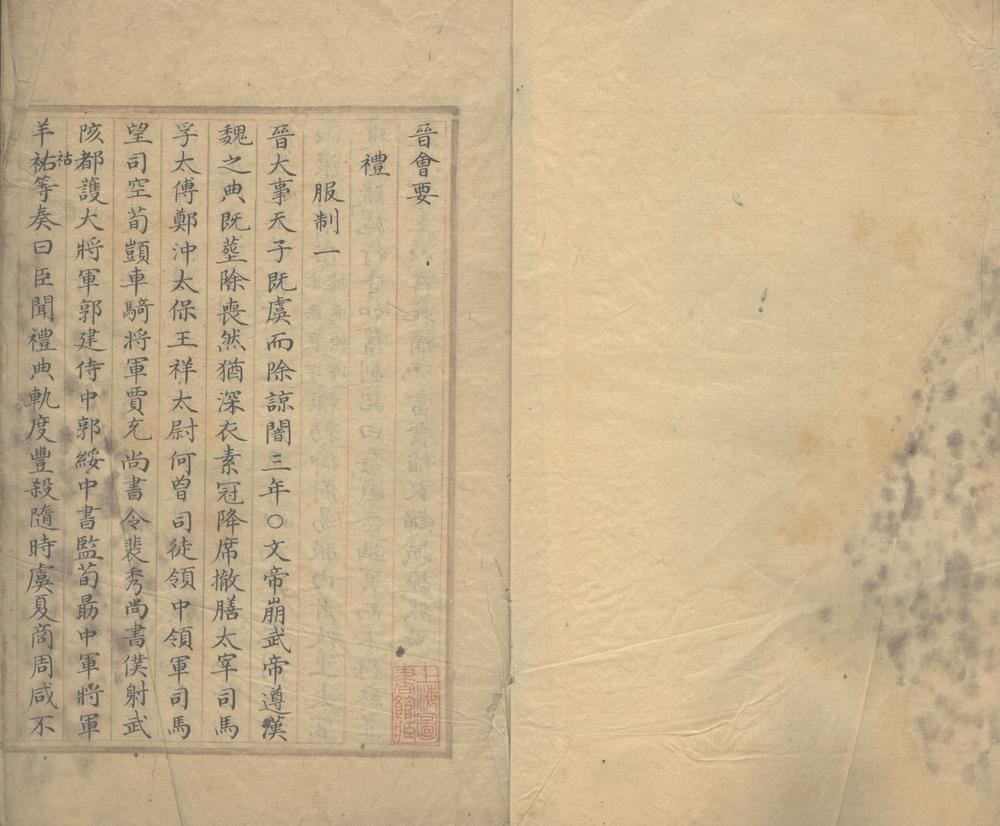 晉會要
禮
服制一
晉大事天子既虞而除諒闇三年○文帝崩武帝遵漢
魏之典既塟除喪然猶深衣素冠降席撤膳太宰司馬
孚太傅鄭沖太保王祥太尉何曾司徒領中領軍司馬
望司空荀顗車騎將軍賈充尚書令裴秀尚書僕射武
陔都護大將軍郭建侍中郭綏中書監荀勗中軍將軍
羊祐等奏曰臣聞禮典軌度豐殺隨時虞夏商周咸不
祜
上海圖
書館藏